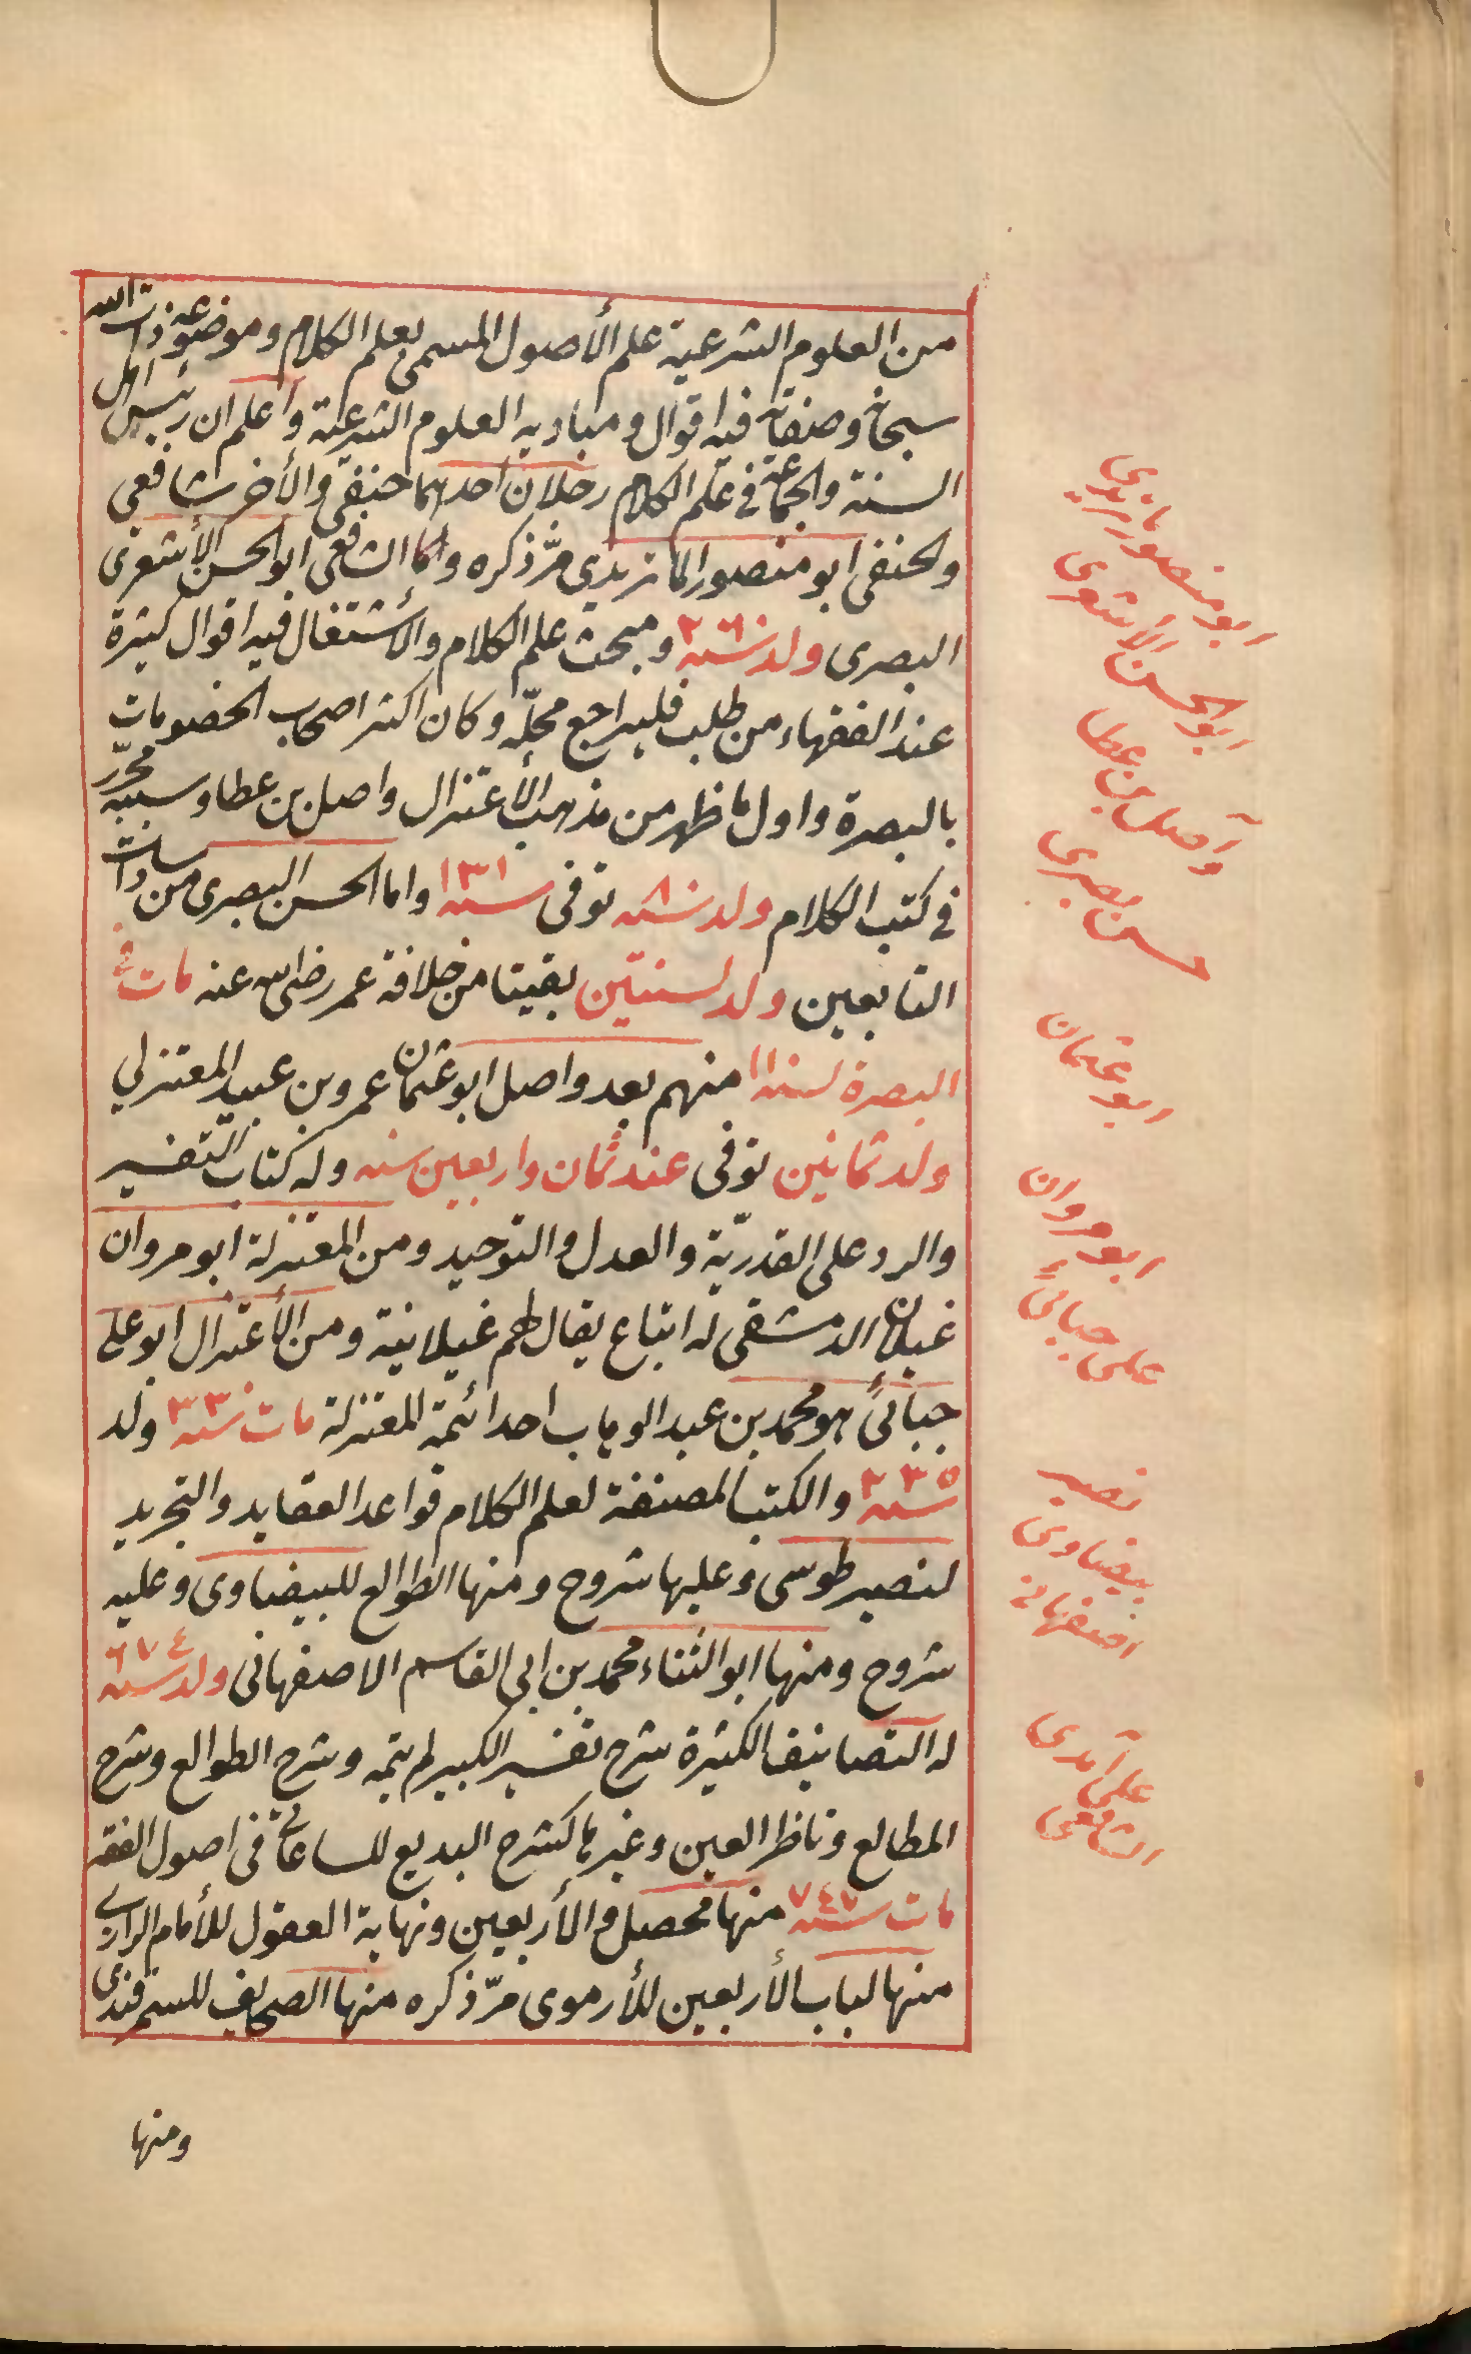 من العلوم الشرعية علم الأصول المسمى بعلم الكلام وموضوعه ذات الله
سبحانه وصفاته فيه اقوال ومباديه العلوم الشرعية وأعلم ان رئيس اهل
السنة والجماعة في علم الكلام رجلان احدهما حنفي والأخر شافعي
والحنفي ابو منصور الماتريدي مرّ ذكره واما الشافعي ابو الحسن الأشعري
البصرى ولد سنة ٢٦٠ ومبحث علم الكلام والأشتغال فيه اقوال كثيرة
عند الفقهاء من طلب فليراجع محلّه وكان اكثر اصحاب الخصومات
بالبصرة واول ما ظهر من مذهب الأعتزال واصل بن عطا وسببه محرّر
في كتب الكلام ولد سنة ٨٠ توفى سنه ١٣١ واما الحسن البصرى من سادات
التابعين ولد لسنتين بقيتا من خلافة عمر رضى الله عنه مات في
البصرة لسنة ١١٠ منهم بعد واصل ابو عثمان عمرو بن عبيد المعتزلي
ولد ثمانين توفى عند ثمان واربعين سنه وله كتاب التفسير
والرد على القدريّة والعدل والتوحيد ومن المعتزلة ابو مروان
غيلان الدمشقى له اتباع يقال لهم غيلانية ومن الأعتزال ابو على
جبائىً هو محمد بن عبد الوهاب احد ائمة المعتزلة مات سنه ٣٠٣ ولد
سنه ٢٣٥ والكتب المصنفة لعلم الكلام قواعد العقايد والتجريد
لنصير طوسى وعليها شروح ومنها الطوالع للبيضاوى وعليه
شروح ومنها ابو الثناء محمد بن ابي القاسم الاصفهانى ولد سنه ٦٧٤
له التصانيف الكثيرة شرح تفسير الكبير لم يتمه وشرح الطوالع وشرح
المطالع وناظر العين وغيرها كشرح البديع للساعاتي فى اصول الفقه
مات سنه ٧٤٧ منها محصل والأربعين ونهاية العقول للأمام الرازي
منها لباب الأربعين للأرموى مرّ ذكره منها الصحايف للسمرقندى
ومنها
ابو منصور ماتريدي
ابو الحسن الاشعرى
واصل بن عطا
حسن بصرى
ابو عثمان
ابو مروان
على جبائىً
نصير
بيضاوى
اصفهانى
على آمدى
الشافعى